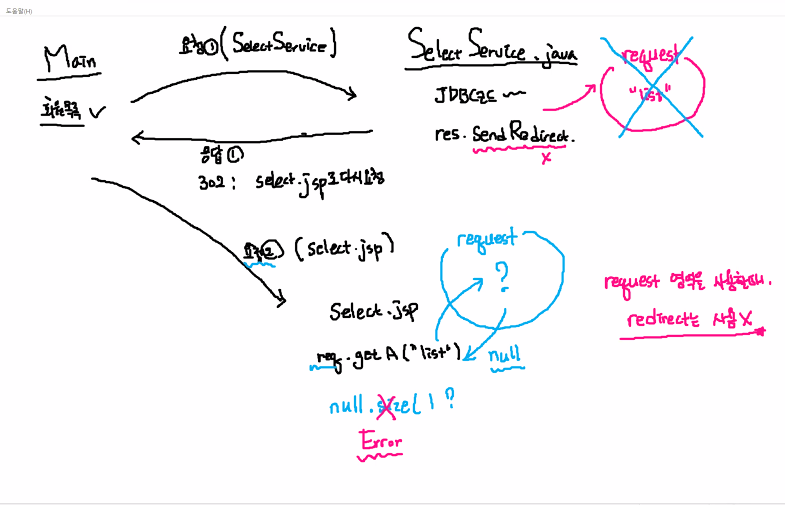 도움말(H)
Main
회원목록
요청① (SelectService)
응답①
302 : select.jsp로 다시 요청
SelectService.java
JDBC코드
res. SendRedirect.
x
request
"list"
요청② (select.jsp)
Select.jsp
req.getA("list")
null.size( ) ?
Error
request
?
null
request 영역을 사용할때.
redirect는 사용 X